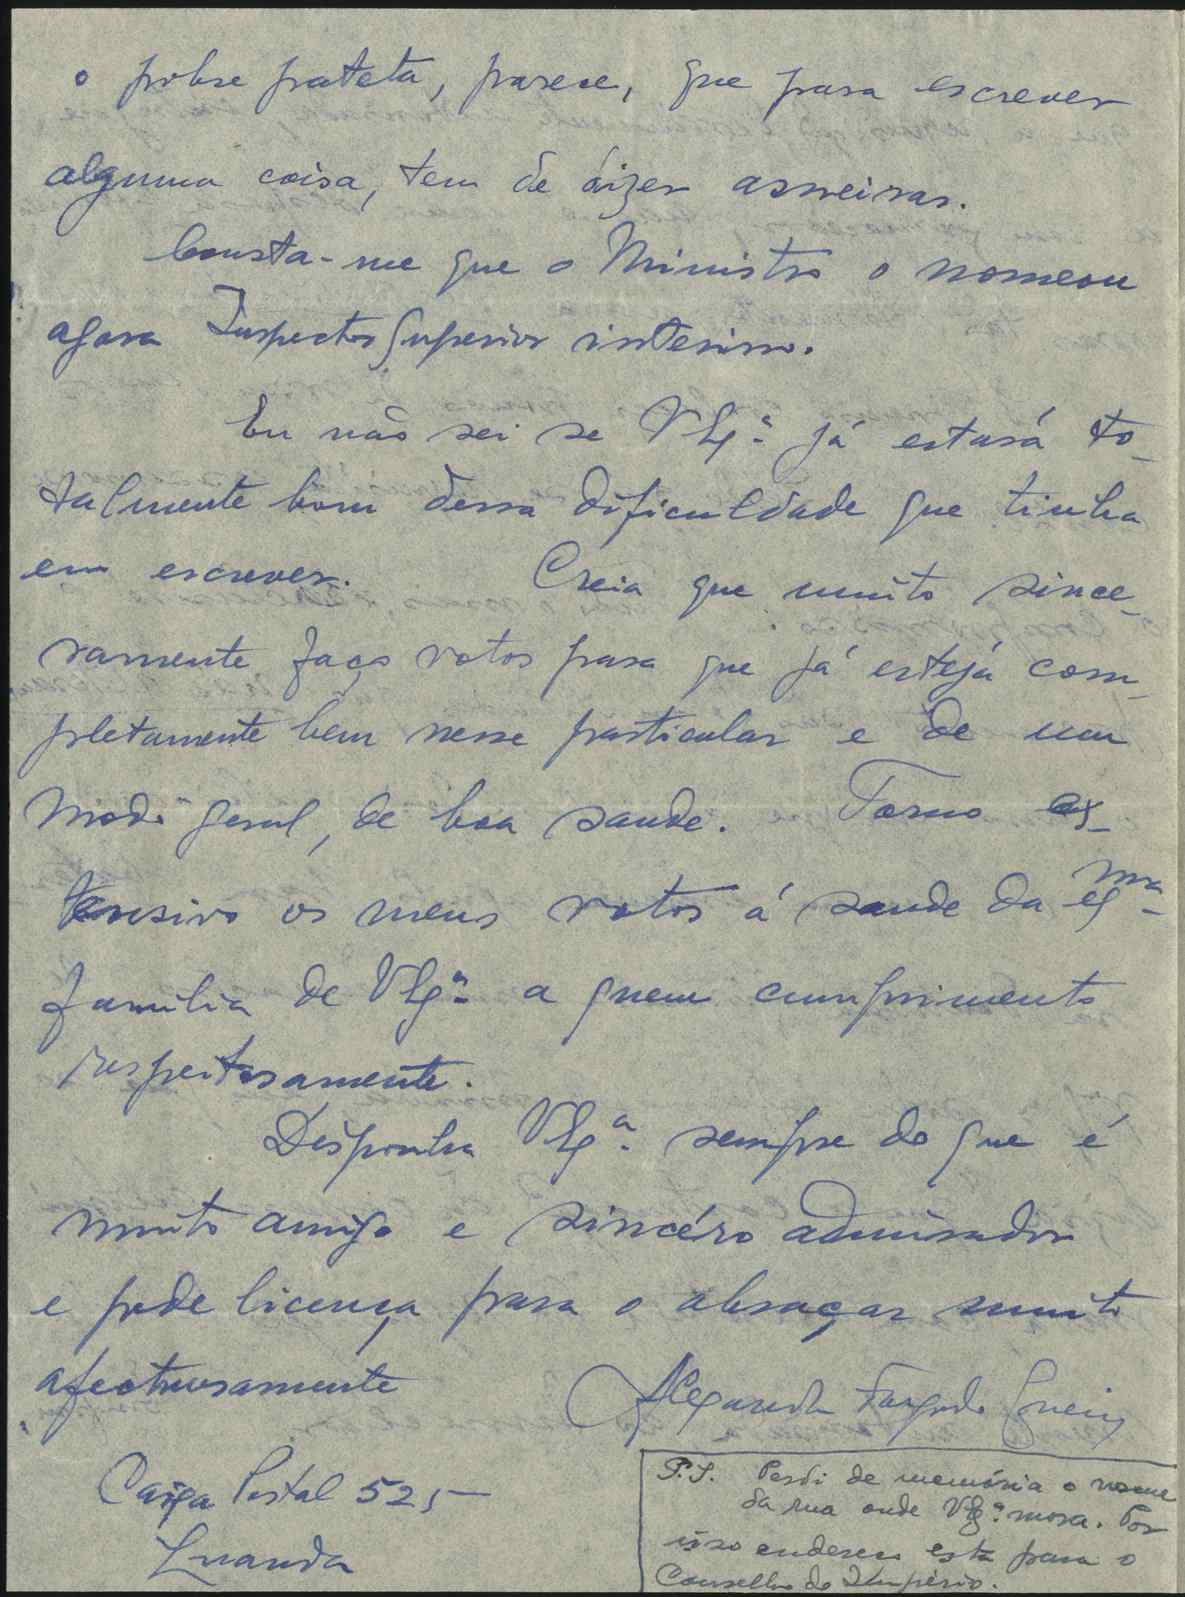 o pobre pateta, parece, que para escrever
alguma coisa, tem de dizer asneiras.
Consta-me que o Ministro o nomeou
agora Inspector Superior interino.
Eu não sei se V Exª já estará to-
talmente bom dessa dificuldade que tinha
em escrever. Creia que muito since-
ramente faço votos para que já estejá com-
pletamente bem nesse particular e de um
modo geral, de boa saude. Torno ex-
tensivo os meus votos á saude da exma
família de V Exª a quem cumprimento
respeitosamente.
Disponha V Exª sempre do que é
muito amigo e sincéro admirador
e pede licença para o abraçar muito
afectuosamente
Alexandre
Caixa Postal 525
Luanda
P.S. Perdi de memória o nome
da rua onde V Exª mora. Por
isso endereço esta para o
Conselho do Império.